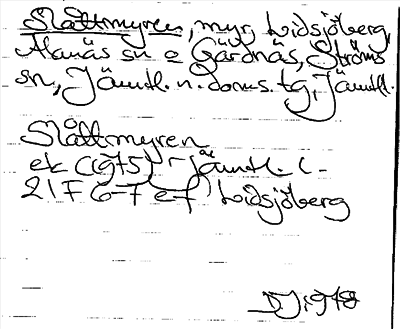 Slåttmyren, myr, Lidsjöberg,
Alanäs sn o Gärdnäs, Ströms
sn, Jämtl. n. doms. tg, Jämtl.
Slåttmyren
ek (1975) - Jämtl. l
21F 6-7 e f Lidsjöberg
DJ 1978